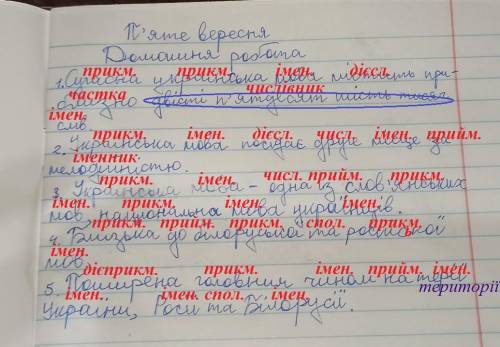 П'яте вересня
Домашня робота
прикм. прикм. імен. дієсл.
1. Сучасна українська мова містить при-
частка числівник
близно двісті п'ятдесят шість тисяч
імен.
слів.
прикм. імен. дієсл. числ. імен. прийм.
2. Українська мова посідає друге місце за
іменник
мелодійністю.
прикм. імен. числ. прийм. прикм.
3. Українська мова - одна із слов'янських
імен. прикм. імен. імен.
мов, національна мова українців.
прикм. прийм. прикм. спол. прикм.
4. Близька до білоруської та російської
імен.
мов.
дієприкм. прикм. імен. прийм. імен.
5. Поширена головним чином на тери
території
імен. імен. спол. імен.
України, Росії та Білорусії.